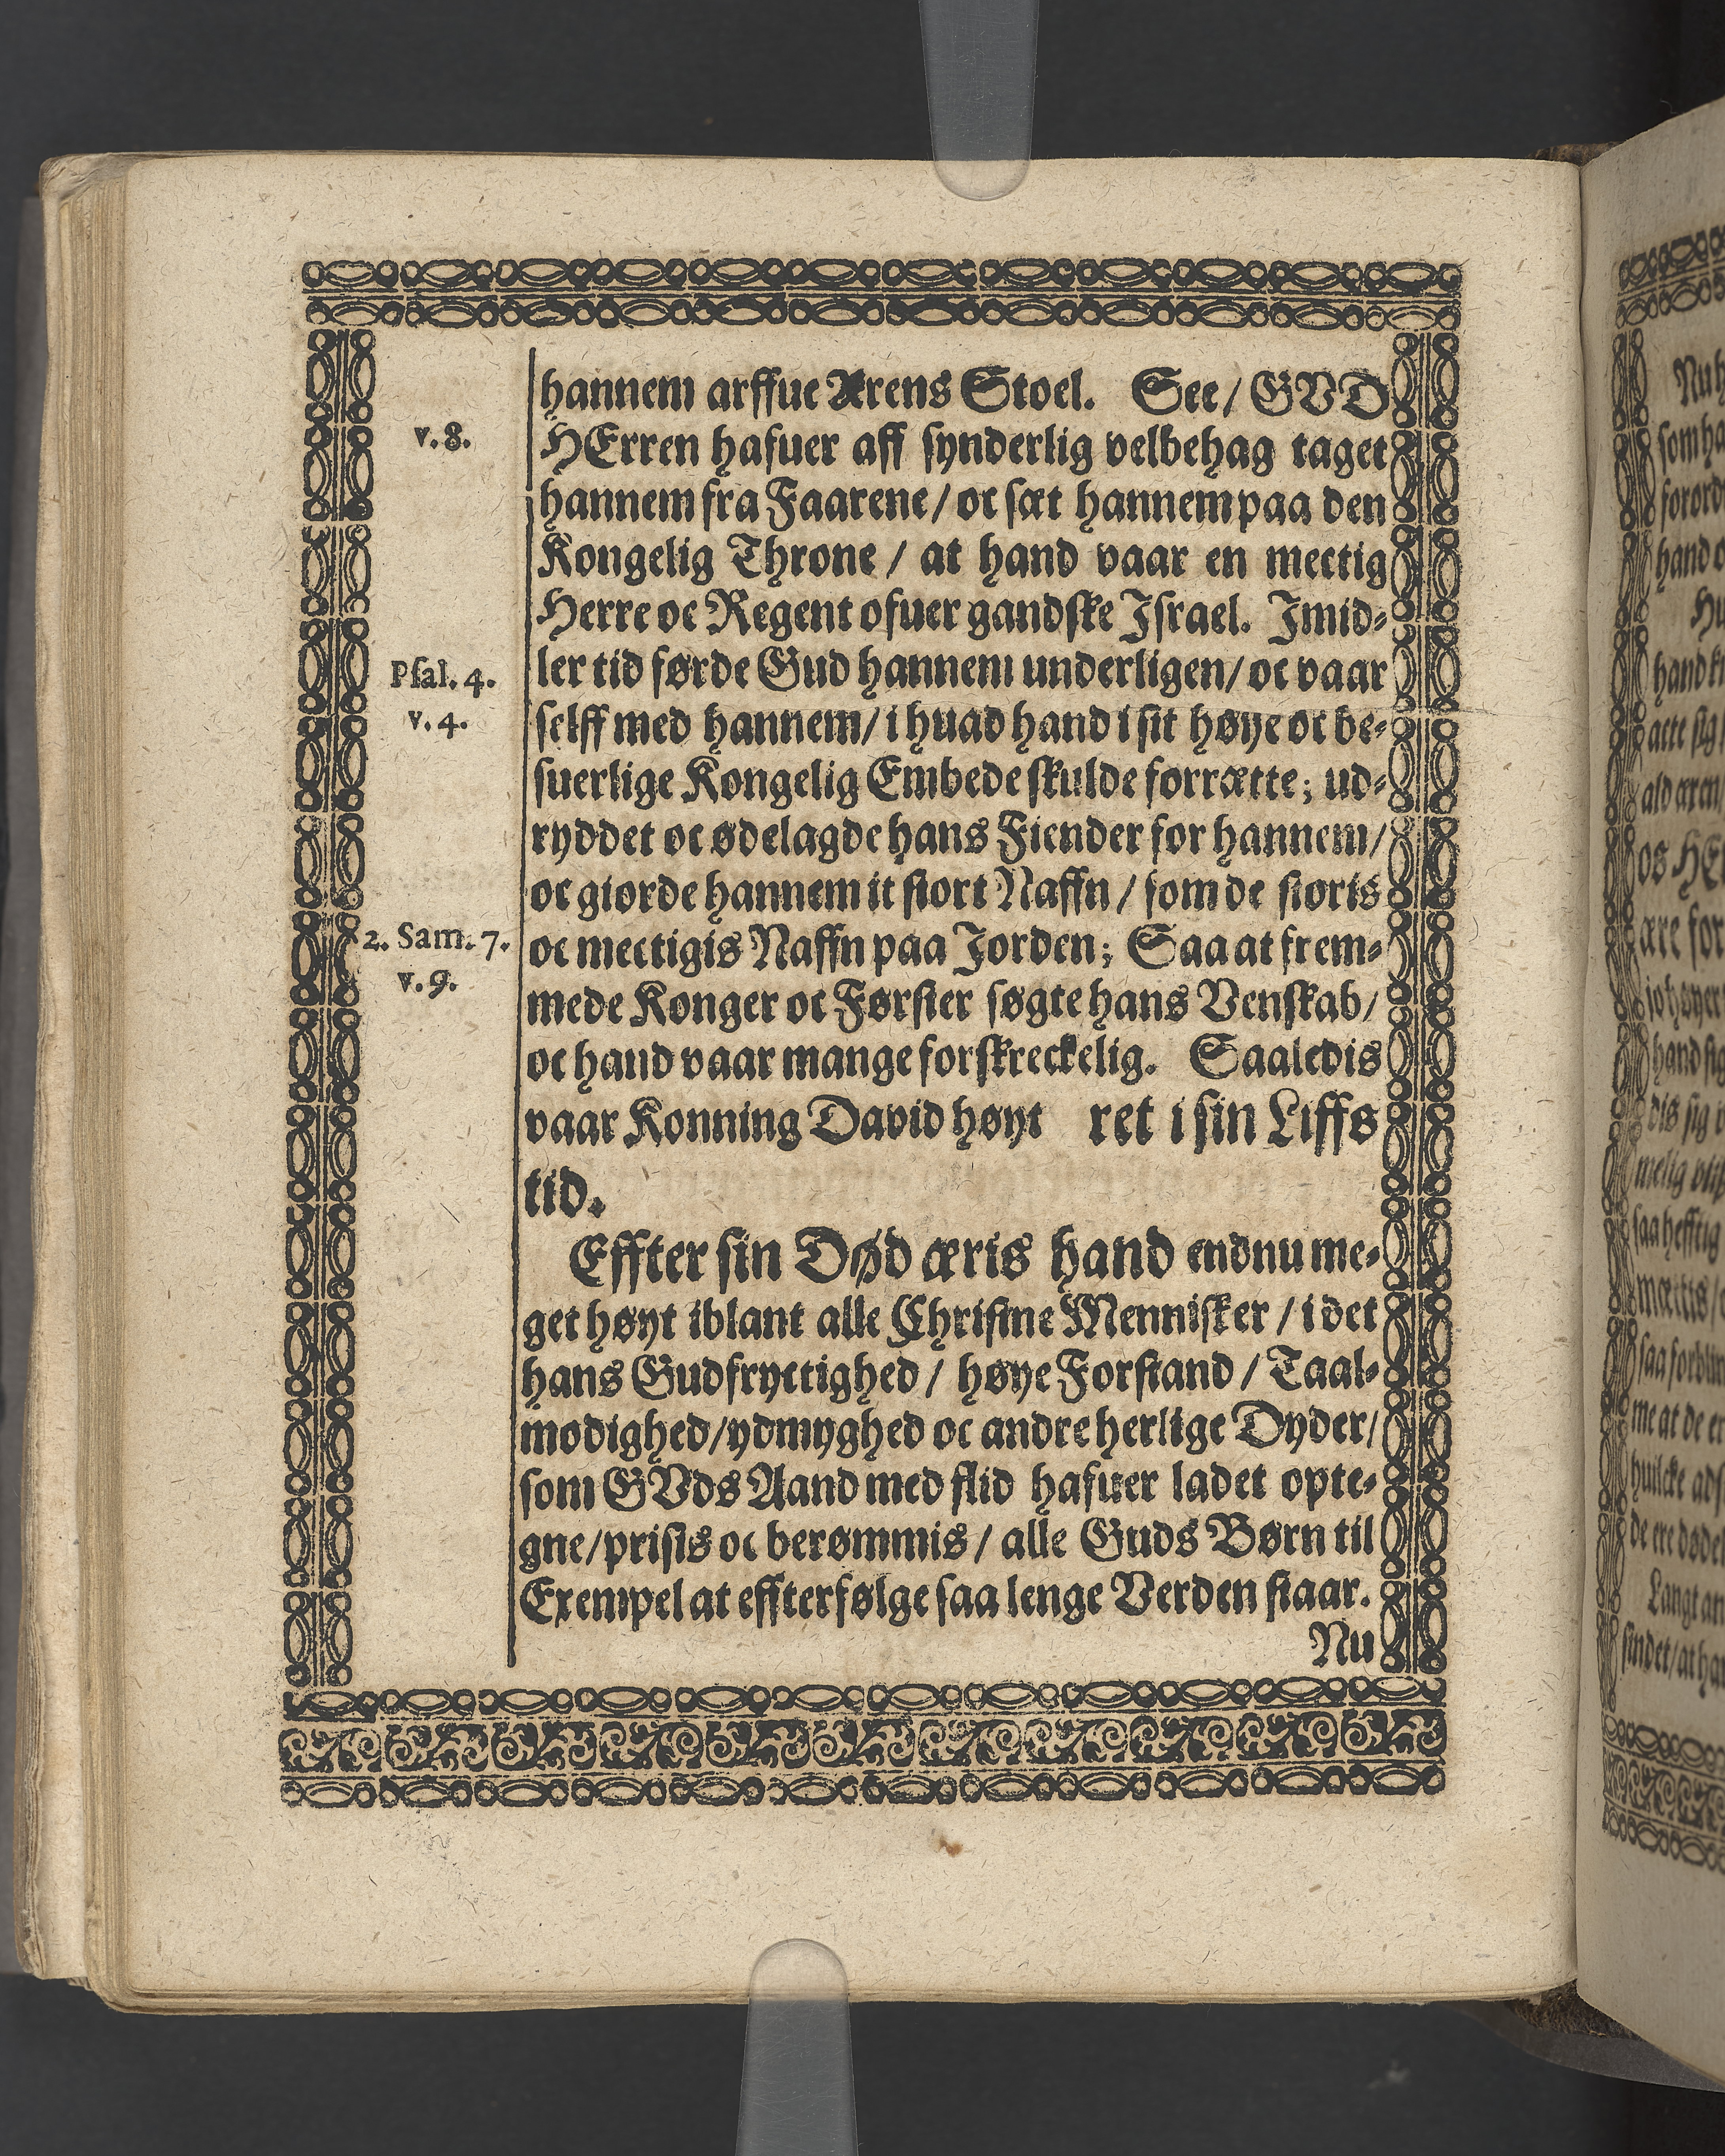 hannem arffue Ærens Stoel. See / GVD
v. 8.
HErren hafuer aff synderlig velbehag taget
hannem fra Faarene / oc sæt hannem paa den
Kongelig Throne / at hand vaar en mectig
Herre oc Regent ofuer gandske Israel. Imid-
Psal. 4.
v. 4.
ler tid førde Gud hannem underligen / oc vaar
selff med hannem / i huad hand i sit høye oc be-
suerlige Kongelig Embede skulde forrætte; ud-
ryddet oc ødelagde hans Fiender for hannem /
oc giorde hannem it stort Naffn / som de storis
2. Sam. 7.
v. 9.
oc mectigis Naffn paa Jorden; Saa at frem-
mede Konger oc Førster søgte hans Venskab /
oc hand vaar mange forskreckelig. Saaledis
vaar Konning David høyt ret i sin Liffs
tid.
Effter sin Død æris hand endnu me-
get høyt iblant alle Christne Mennisker / i det
hans Gudfryctighed / høye Forstand / Taal-
modighed / ydmyghed oc andre herlige Dyder /
som GVds Aand med flid hafuer ladet opte-
gne / prisis oc berømmis / alle Guds Børn til
Exempel at effterfølge saa lenge Verden staar.
Nu